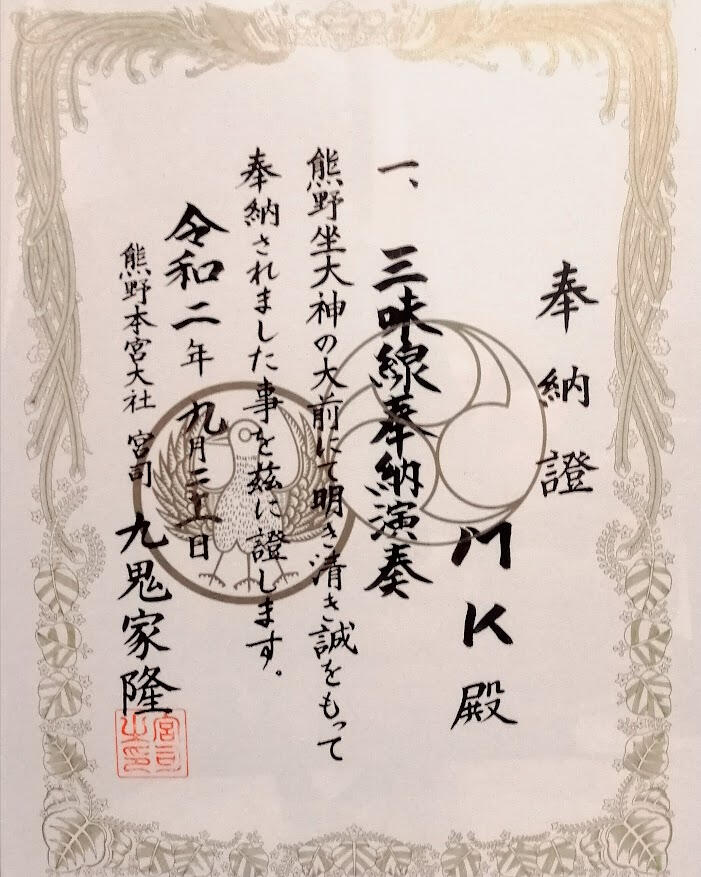 奉納證
MK殿
一、三味線奉納演奏
熊野坐大神の大前にて明き清き誠をもって
奉納されました事を茲に證します。
令和二年九月二十一日
熊野本宮大社 宮司 九鬼家隆
宮司之印